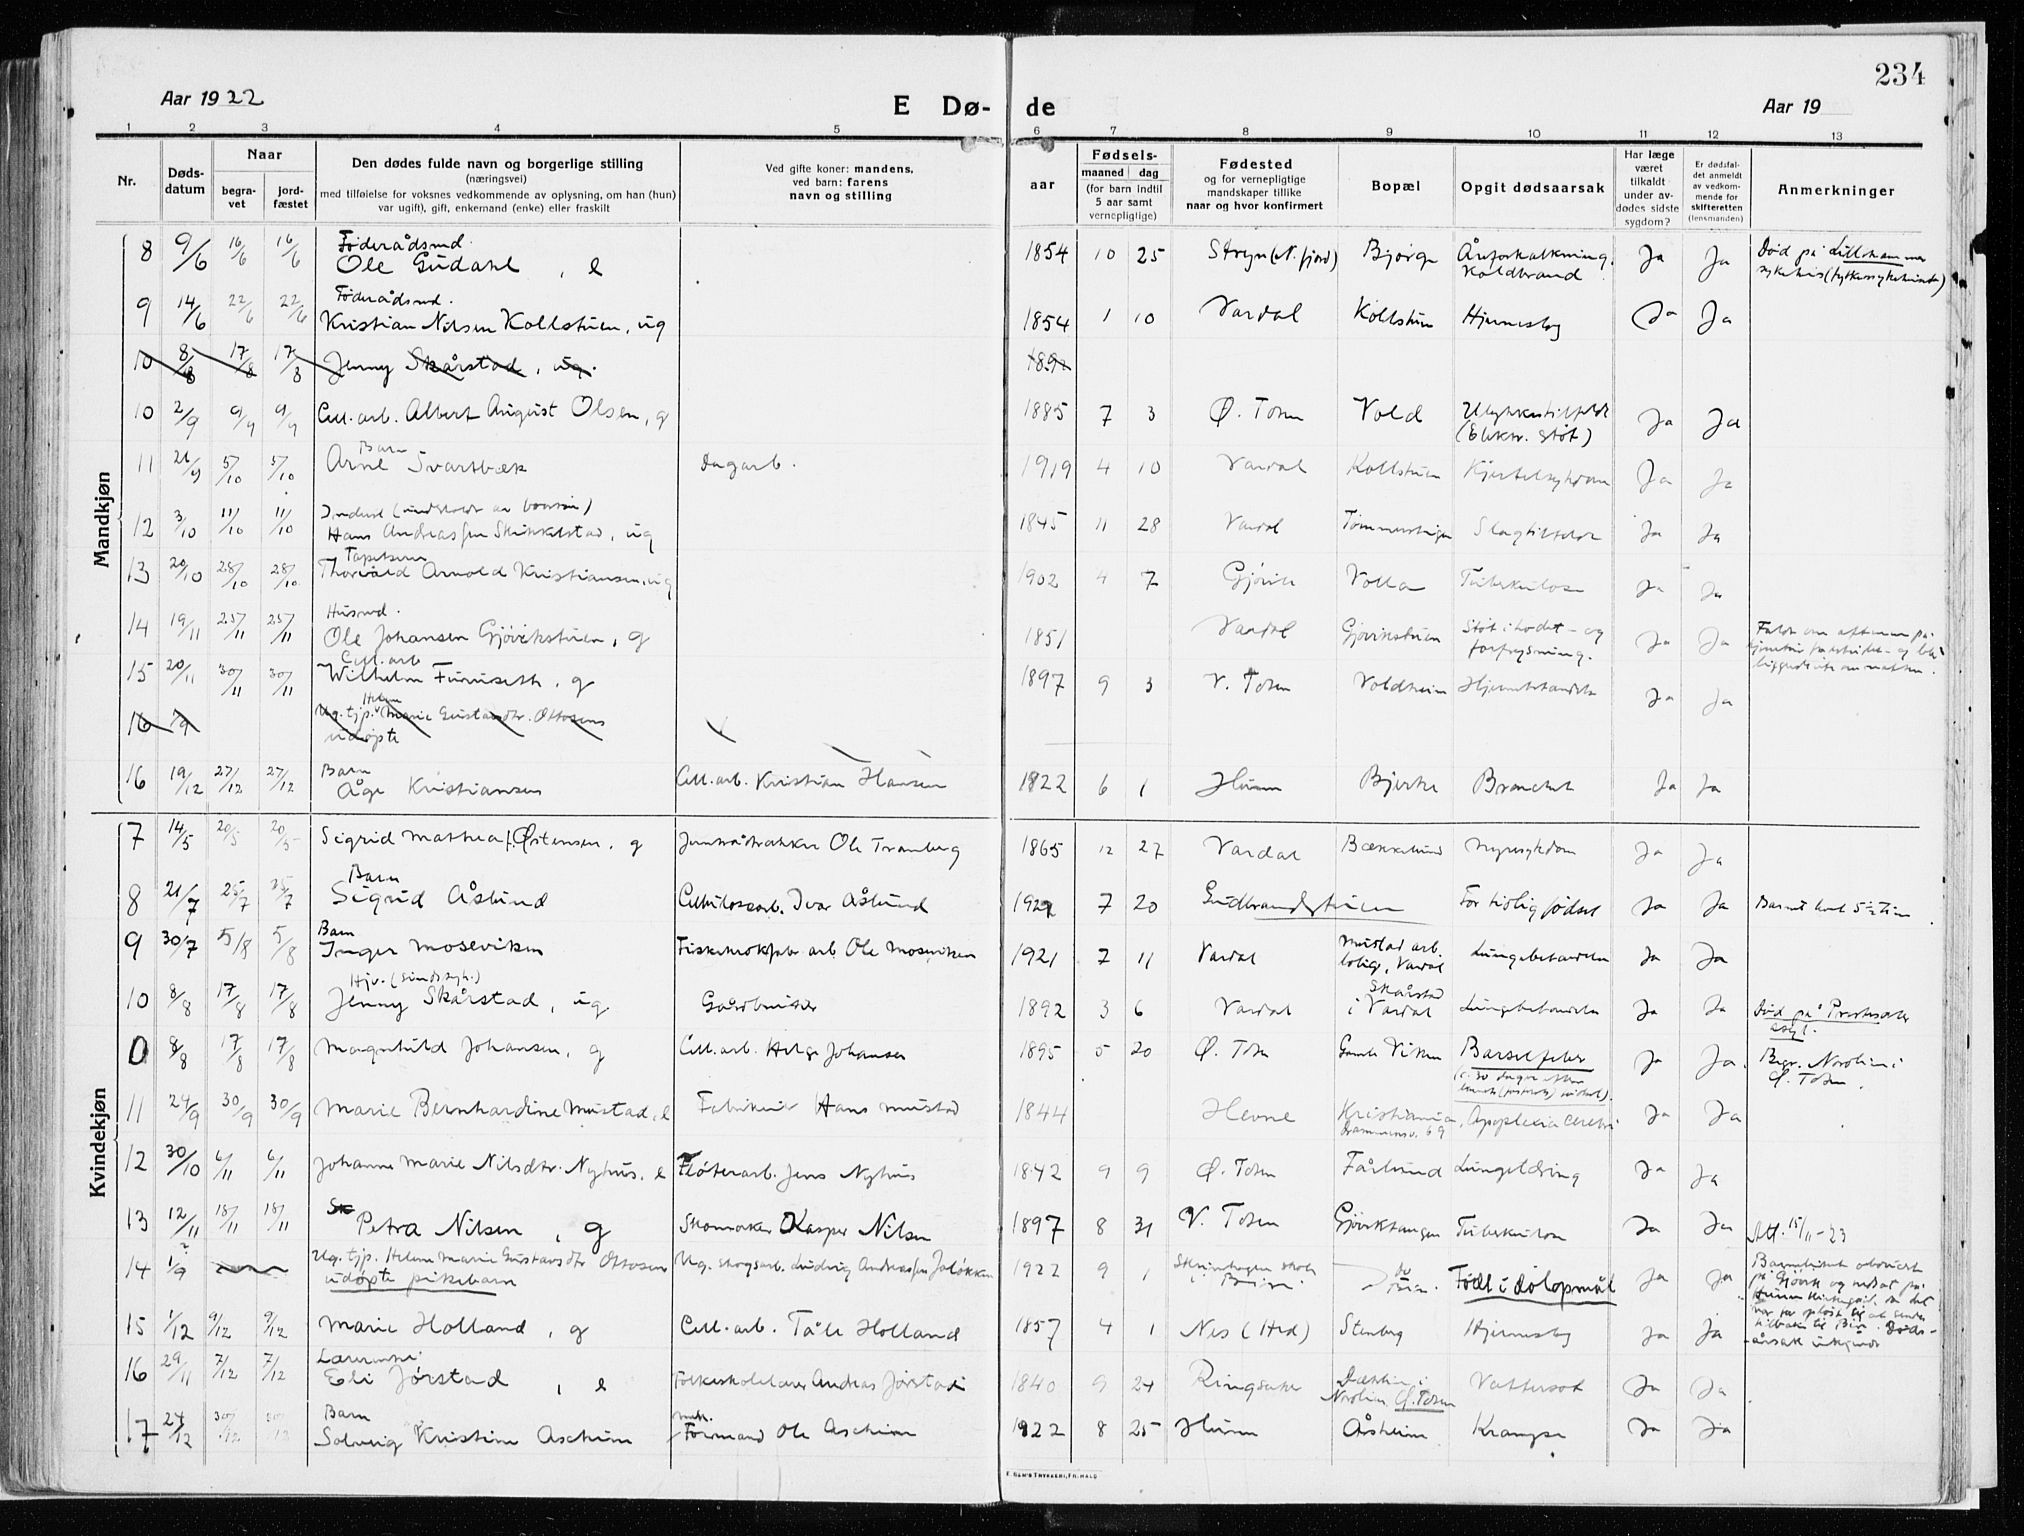 234
Aar 1922
E Dø-
de
Aar 19
1 2 3 4 5 6 7 8 9 10 11 12 13
Nr.
Døds-
datum
Naar
begra-
vet
jord-
fæstet
Den dødes fulde navn og borgerlige stilling
(næringsvei)
med tilføielse for voksnes vedkommende av oplysning, om han (hun)
var ugift), gift, enkemand (enke) eller fraskilt
Ved gifte koner: mandens,
ved barn: farens
navn og stilling
Fødsels-
aar
maaned dag
(for barn indtil
5 aar samt
vernepligtige)
Fødested
og for vernepligtige
mandskaper tillike
naar og hvor konfirmert
Bopæl
Opgit dødsaarsak
Har læge
været
tilkaldt
under av-
dødes sidste
sygdom?
Er dødsfal-
det anmeldt
av vedkom-
mende for
skifteretten
(lensmanden)
Anmerkninger
Mandkjøn
8 9/6 16/6 16/6 Føderådsmd. Ole Gudahl, e 1854 10 25 Stryn (N. fjord) Bjørge Årforkalkning. Koldbrand Ja Ja Død på Lillehammer
sykehus
9 14/6 22/6 22/6 Føderådsmd. Kristian Nilsen Kollstuen, ug 1854 1 10 Vardal Kollstuen Hjerneslag Ja Ja
10 8/8 17/8 17/8 Jenny Skårstad, ug. 1892
10 2/9 9/9 9/9 Cell. arb. Albert August Olsen, g 1885 7 3 Ø. Toten Vold Ulykkestilfelde (Elektr. støt) Ja Ja
11 21/9 5/10 5/10 Barn Arne Svartbæk Dagarb. 1919 4 10 Vardal Kollstuen Kjertelsykdom Ja Ja
12 3/10 11/10 11/10 Hans Andreassen Skinkelstad, ug 1845 11 28 Vardal Tømmerstigen Slagtilfelde Ja Ja
13 20/10 28/10 28/10 Tapetserer Thorvald Arnold Kristiansen, ug 1902 4 7 Gjøvik Volla Tuberkulose Ja Ja
14 19/11 25/11 25/11 Husmd. Ole Johansen Gjøvikstuen, g 1851 Vardal Gjøvikstuen Støt i hodet - og forfrysning. Ja Ja
15 20/11 30/11 30/11 Cell. arb Wilhelm Furuseth, g 1897 9 3 V. Toten Voldheim Ja Ja
16 1/9 Ug. tjp. Helen Marie Gustavsdtr. Ottosens udøpte
16 19/12 27/12 27/12 Barn Åge Kristiansen Cell. arb. Kristian Hansen 1822 6 1 Hunn Bjerke Bronchit Ja Ja
Kvindekjøn
7 14/5 20/5 20/5 Sigrid Mathea f. Østensen, g Jerntrådtrækker Ole Tranberg 1865 12 27 Vardal Bækkelund Nyresykdom Ja Ja
8 21/7 25/7 25/7 Barn Sigrid Åslund Cellulosearb. Ivar Åslund 1922 7 20 Gudbrandstuen For tidlig fødsel Ja Ja Barnet levet 5½ Tim
9 30/7 5/8 5/8 Barn Inger Moseviken Fiskekrokfabr. arb. Ole Moseviken 1921 7 11 Vardal Mustad arb. bolig, Vardal Lungebetændelse Ja Ja
10 8/8 17/8 17/8 Hjv. (sindssyk.) Jenny Skårstad, ug Gårdbruker 1892 3 6 Vardal Skårstad i Vardal Lungebetændelse Ja Ja Død på Presteseter
asyl.
0 8/8 17/8 17/8 Magnhild Johansen, g Cell. arb. Helge Johansen 1895 5 20 Ø. Toten Gamle Viken Barselfeber Ja Ja Begr. Nordlien i
Ø. Toten.
11 24/9 30/9 30/9 Marie Bernhardine Mustad, e Fabrikeier Hans Mustad 1844 Hevne Kristiania, Drammensv. 69 Apoplexia cerebri Ja Ja
12 30/10 6/11 6/11 Johanne Marie Nilsdtr. Nyhus, e Fløterarb. Jens Nyhus 1842 9 9 Ø. Toten Fårlund Ja Ja
13 12/11 18/11 18/11 Petra Nilsen, g Skomaker Kasper Nilsen 1897 8 31 V. Toten Gjøviktangen Tuberkulose Ja Ja Att. 15/11-23
14 1/9 Ug. tjp. Helene Marie Gustavsdtr Ottosen udøpte pikebarn Ug. skogsarb. Ludvig Andreassen 1922 9 1 Født i dølgsmål Ja Ja
15 1/12 9/12 9/12 Marie Holland, g Cell. arb. Tåle Holland 1857 4 1 Nes (Hed) Stenberg Hjerneslag Ja Ja
16 29/11 7/12 7/12 Lærerinde Eli Jørstad, e Folkeskolelærer Andreas Jørstad 1840 9 24 Ringsaker Nordlien, Ø. Toten Vattersot Ja Ja
17 24/12 30/12 30/12 Barn Solveig Kristine Aschim Formand Ole Aschim 1922 8 25 Hunn Åsheim Krampe Ja Ja
E. SEM'S TRYKKERI, FR.HALD